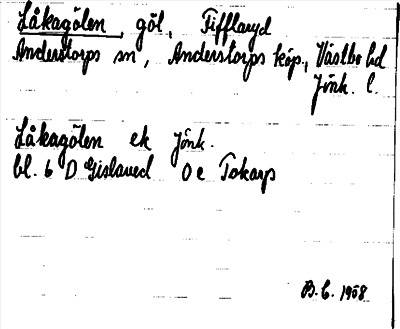 Låkagölen, göl, Tifflaryd
Anderstorps sn, Anderstorps köp., Västbo hd
Jönk. l.
Låkagölen ek Jönk.
bl. 6 D Gislaved 0 e Tokarp
B. C. 1958